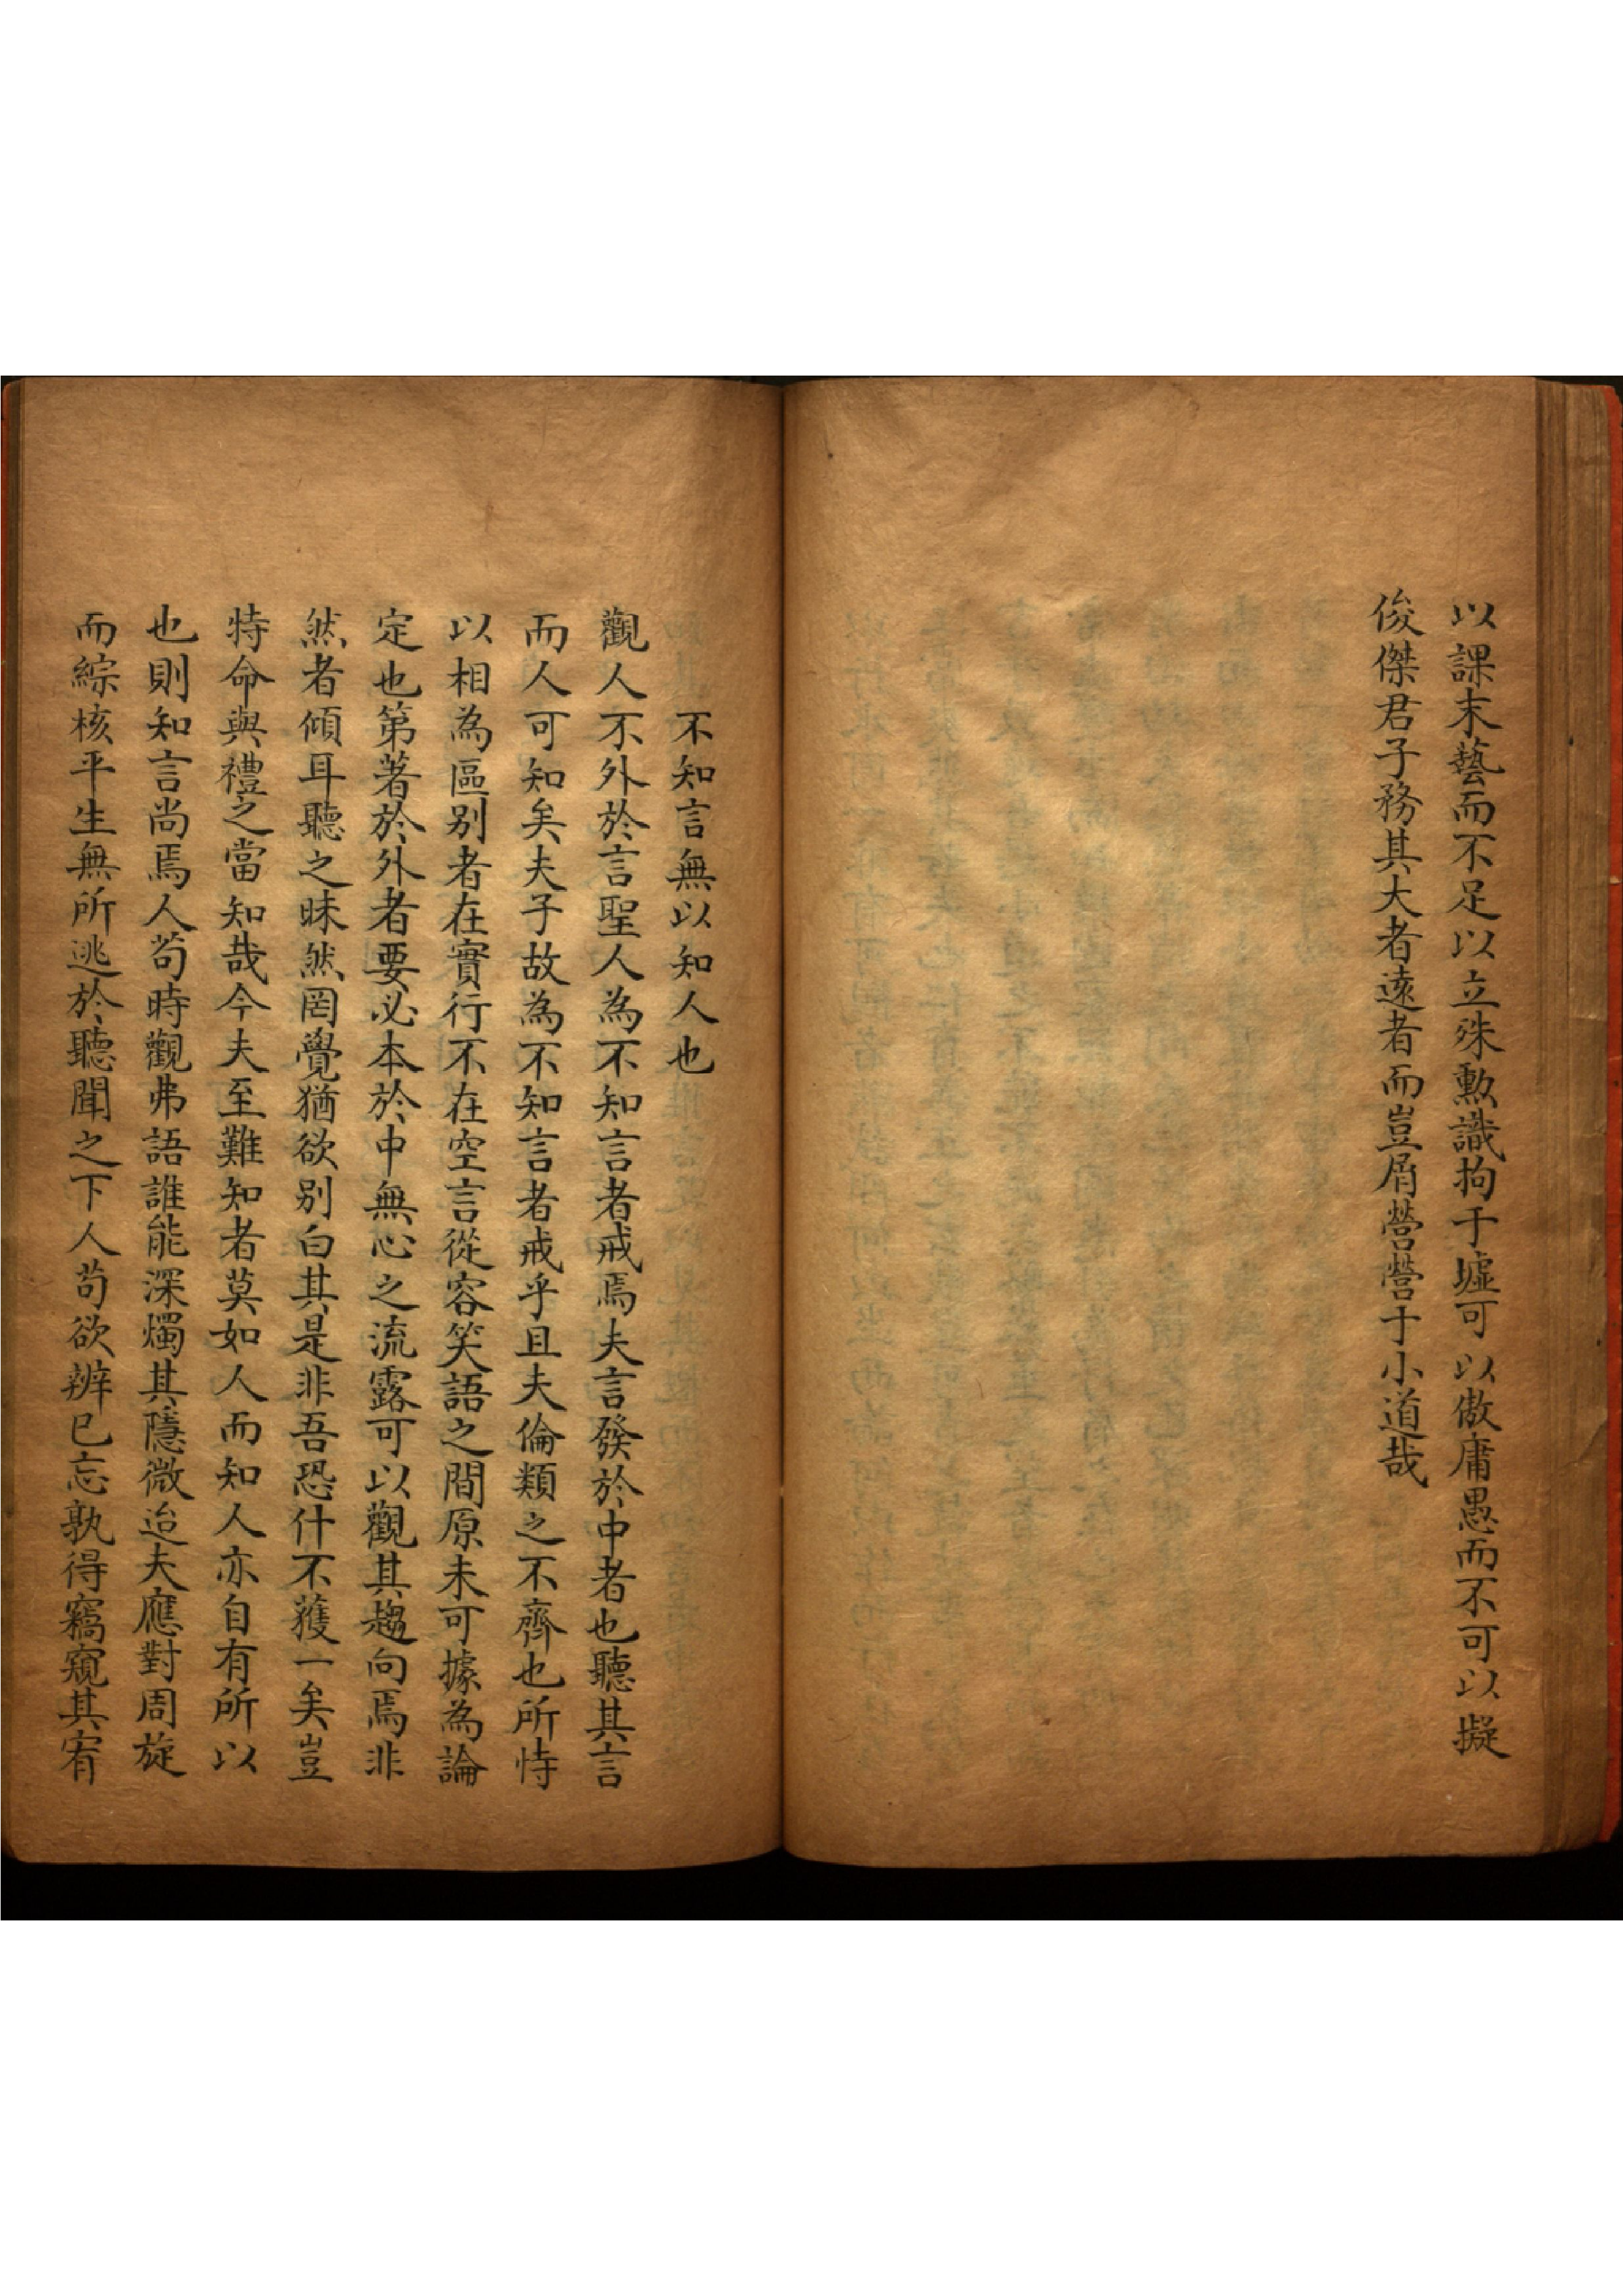 以課末藝而不足以立殊勲識拘于墟可以傲庸愚而不可以擬
俊傑君子務其大者遠者而豈屑營營于小道哉
不知言無以知人也
觀人不外於言聖人為不知言者戒焉夫言發於中者也聽其言
而人可知矣夫子故為不知言者戒乎且夫倫類之不齊也所恃
以相為區别者在實行不在空言從容笑語之間原未可據為論
定也第著於外者要必本於中無心之流露可以觀其趨向焉非
然者傾耳聽之昧然罔覺猶欲别白其是非吾恐什不獲一矣豈
特命與禮之當知哉今夫至難知者莫如人而知人亦自有所以
也則知言尚焉人苟時觀弗語誰能深燭其隱微迨夫應對周旋
而綜核平生無所逃於聽聞之下人苟欲辨已忘孰得竊窺其宥